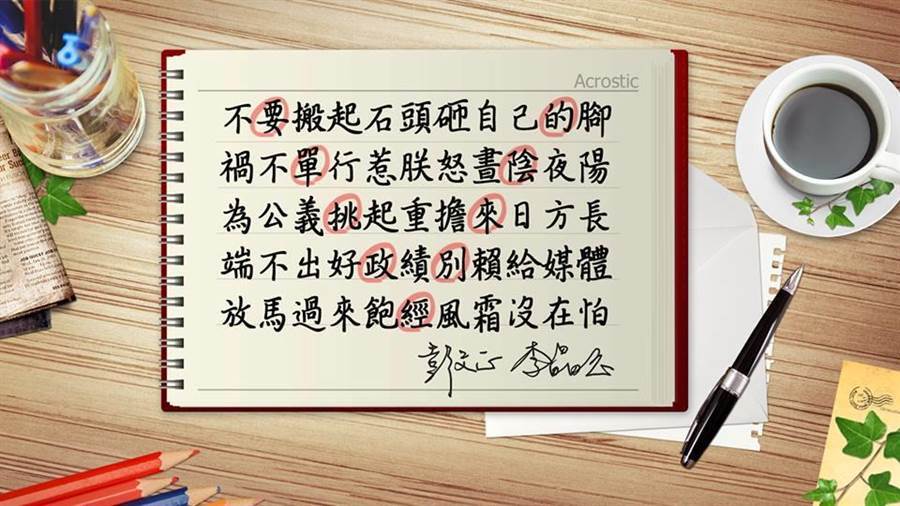 Acrostic
不要搬起石頭砸自己的腳
禍不單行惹朕怒晝陰夜陽
為公義挑起重擔來日方長
端不出好政績別賴給媒體
放馬過來飽經風霜沒在怕
彭文正 李晶玉